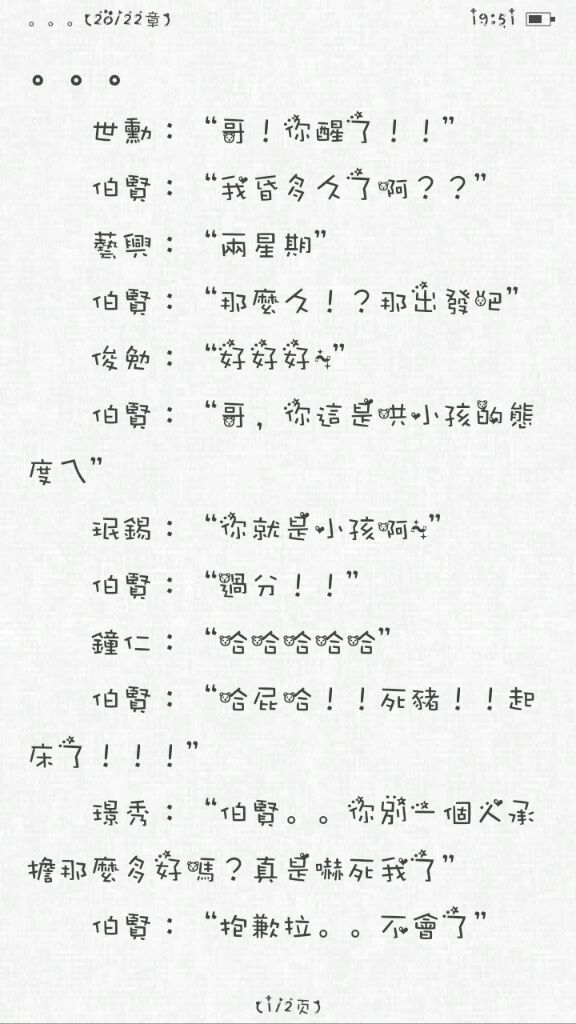 。。。(20/22章)
19:51
。。。
世勳：“哥！你醒了！！”
伯賢：“我昏多久了啊？？”
藝興：“兩星期”
伯賢：“那麼久！？那出發吧”
俊勉：“好好好~”
伯賢：“哥，你這是哄小孩的態
度ㄟ”
珉錫：“你就是小孩啊~”
伯賢：“過分！！”
鐘仁：“哈哈哈哈哈”
伯賢：“哈屁哈！！死豬！！起
床了！！！”
璟秀：“伯賢。。你別一個人承
擔那麼多好嗎？真是嚇死我了”
伯賢：“抱歉拉。。不會了”
(1/2页)